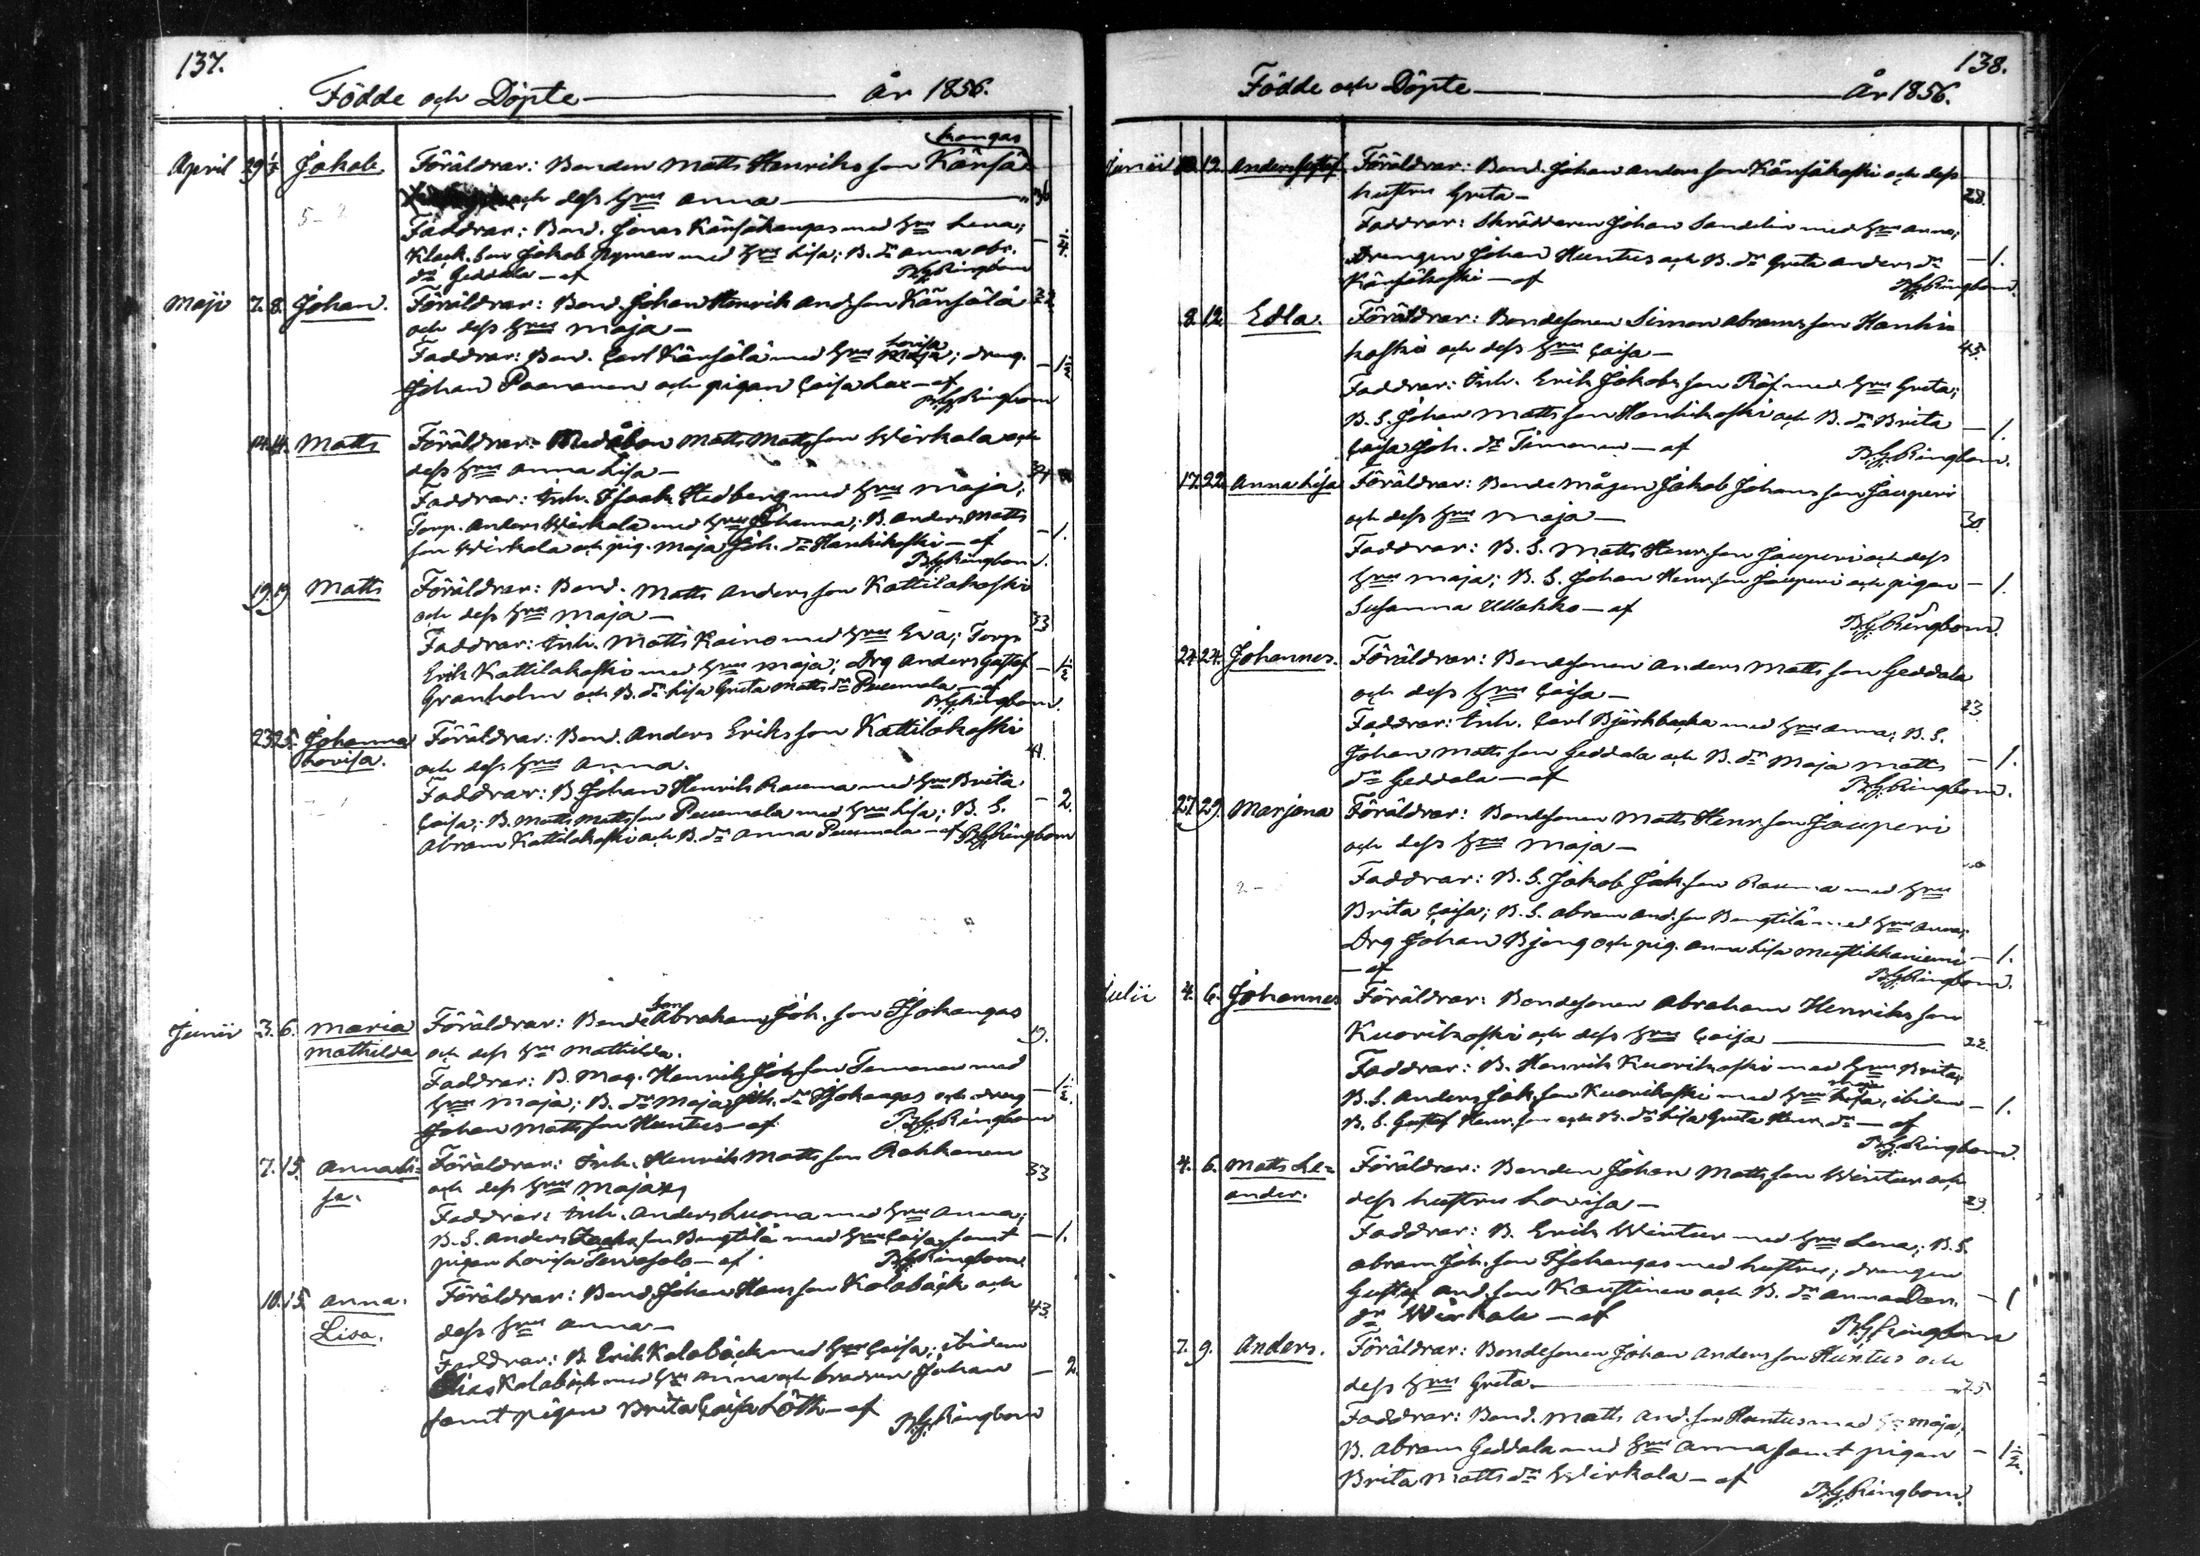 137.
Födde och Döpte — År 1856.
kangas
April 29 Jakob. Föräldrar: Bonden Matts Henriksson Känsä-
och dess Hru Anna — 36
Faddrar: Bond. Jonas Känsäkangas med Hru Lena;
Klock. Son Jakob Nyman med Hru Lisa; B. dr Anna Abr.
dr Geddala — af B.G. Ringbom
Maji 7. 8. Johan. Föräldrar: Bond. Johan Henrik Andsson Känsälä
och dess Hru Maja —
Lovisa
Faddrar: Bond. Carl Känsälä med Hru; dreng. — 1½
Johan Paananen och pigan Caisa Lax — af
B.G. Ringbom
14. 14. Matts Föräldrar: Matts Mattsson Wirkala och
dess Hru Anna Lisa — 34
Faddrar: Inh. Isaak Hedberg med Hru Maja;
Torp. Anders Wirkala med Hru Johanna; B. Anders Matts
son Wirkala och pig. Maja Joh. dr Hankikoski — af — 1.
B.G. Ringbom.
19 19 Matts Föräldrar: Bond. Matts Andersson Kattilakoski
och dess Hru Maja — 33
Faddrar: Inh. Matts Kaino med Hru Eva; Torp
Erik Kattilakoski med Hru Maja; Drg Anders Gustaf — 1½
Granholm och B. dr Lisa Greta Matts dr Peuemala — af
B.G. Ringbom.
23 25. Johanna Föräldrar: Bond. Anders Eriksson Kattilakoski
Lovisa. och dess Hru Anna. 41.
Faddrar: B. Johan Henrik Rauma med Hru Brita
Caisa; B. Matts Mattsson med Hru Lisa; B. S. — 2.
Abram Kattilakoski och B. dr Anna — af B.G. Ringbom
son
Junii 3. 6. Maria Föräldrar: Bonde Abraham Joh. son Isokangas
Mathilda och dess Hru Mathilda. 19.
Faddrar: B. Mag. Henrik Joh. son Temonen med
Hru Maja; B. dr Maja Joh. dr Isokangas och dreng — 1½.
Johan Mattsson Huntus — af B.G. Ringbom
7. 15. Anna Li= Föräldrar: Inh. Henrik Mattsson Rahkonen
sa. och dess Hru Maja 33
Faddrar: Inh. Anders Luoma med Hru Anna;
B. S. Anders son Bengtilä med Hru Caisa samt — 1.
pigan Lovisa — af B.G. Ringbom
10. 15. Anna Föräldrar: Bond. Johan Hansson Kolabäck och
Lisa. dess Hru Anna — 43
Faddrar: B. Erik Kolabäck med Hru Caisa; ibidem
Elias Kolabäck med Hru Anna och brodren Johan — 2.
samt pigan Brita Caisa Löth — af
B.G. Ringbom
138.
Födde och Döpte — År 1856.
Junii 12. Anders Gustaf Föräldrar: Bond. Johan Andersson Känsäkoski och dess
hustru Greta — 28.
Faddrar: Skräddaren Johan Sandelin med Hru Anna;
Drengen Johan Huntus och B. dr Greta Anders dr — 1.
Känsäkoski — af B.G. Ringbom.
8. 12. Edla. Föräldrar: Bondesonen Simon Abramsson Hanki
koski och dess Hru Caisa — 45.
Faddrar: Inh. Erik Jakobsson Räf med Hru Greta;
B. S. Johan Mattsson Hankikoski och B. dr Brita — 1.
Caisa Joh. dr Timonen — af B.G. Ringbom.
17. 22. Anna Lisa Föräldrar: Bonde mågen Jakob Johansson Jauperi
och dess Hru Maja — 30.
Faddrar: B. S. Matts Henr. son Jauperi och dess
Hru Maja; B. S. Johan Henr. son Jauperi och pigan — 1.
Susanna Ullakko — af B.G. Ringbom.
24. 24. Johannes. Föräldrar: Bondesonen Anders Mattsson Geddala
och dess Hru Caisa — 23.
Faddrar: Inh. Carl Björkbacka med Hru Anna; B. S.
Johan Mattsson Geddala och B. dr Maja Matts — 1.
dr Geddala — af B.G. Ringbom.
27. 29. Marjana Föräldrar: Bondesonen Matts Henr. son Jauperi
och dess Hru Maja —
Faddrar: B. S. Jakob Jak. son Rauma med Hru
Brita Caisa; B. S. Abram And. son Bengtilä med Hru Anna;
Drg Johan Bjong och pig. Anna Lisa Mustikkaniemi — 1.
— af B.G. Ringbom.
Julii 4. 6. Johannes Föräldrar: Bondesonen Abraham Henriksson
Kuorikoski och dess Hru Caisa — 22.
Faddrar: B. Henrik Kuorikoski med Hru Brita;
B. S. Anders Jak. son Kuorikoski med Hru Maja, ibidem — 1.
B. S. Gustaf Henr. son och B. dr Lisa Greta Henr. dr — af
B.G. Ringbom.
4. 6. Matts Le= Föräldrar: Bonden Johan Mattsson Wintur och
ander. dess hustru Lovisa — 29.
Faddrar: B. Erik Wintur med Hru Lena; B. S.
Abram Joh. son Isokangas med hustru; drengen
Gustaf And. son Kaustinen och B. dr Anna Dan. — 1
dr Wirkala — af B.G. Ringbom
7. 9. Anders. Föräldrar: Bondesonen Johan Andersson Huntus och
dess Hru Greta. — 25
Faddrar: Bond. Matts And. son Huntus med Hru Maja;
B. Abram Geddala med Hru Anna samt pigan — 1½.
Brita Matts dr Wirkala — af
B.G. Ringbom.